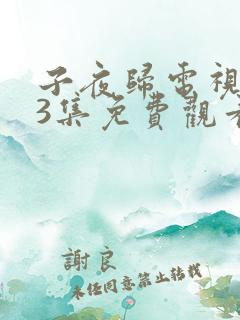 子夜歸電視
3集免費觀看
謝良
未经同意禁止转载